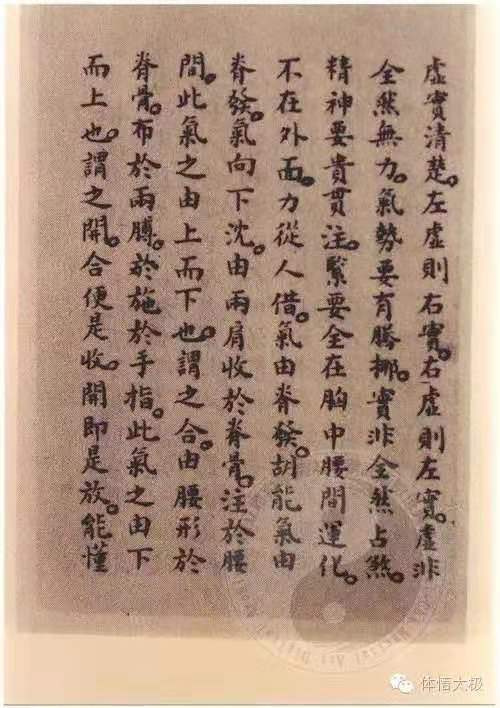 虛實清楚。左虛則右實。右虛則左實。虛非
全然無力。氣勢要有騰挪。實非全然占煞。
精神要貴貫注。緊要全在胸中腰間運化。
不在外面。力從人借。氣由脊發。胡能氣由
脊發。氣向下沈。由兩肩收於脊骨。注於腰
間。此氣之由上而下也。謂之合。由腰形於
脊骨。布於兩膊。於施於手指。此氣之由下
而上也。謂之開。合便是收。開即是放。能懂
体悟太极